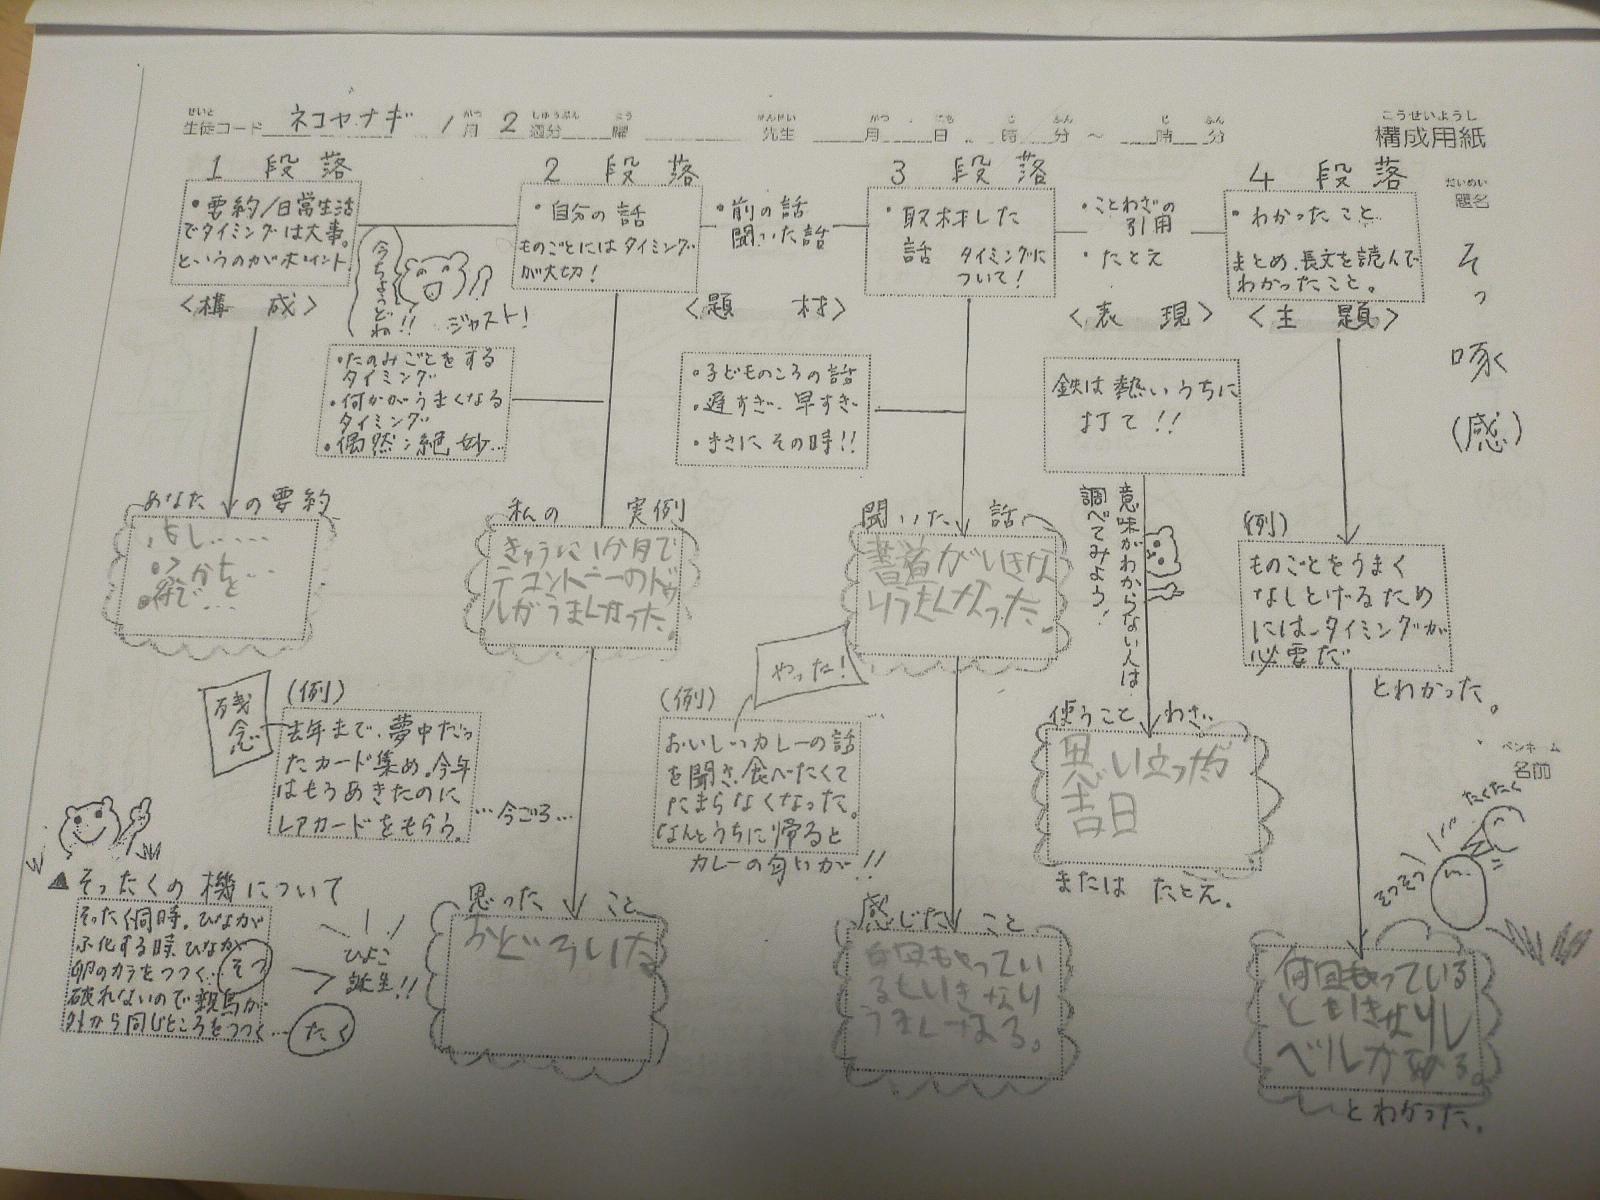 せいと
生徒コード ネコヤナギ 1月 2週分 曜 先生 月 日 時 分 ～ 時 分
こうせいようし
構成用紙
だいめい
題名
そっ
啄
(感)
1 段 落
・要約/日常生活
でタイミングは大事。
というのがポイント
〈構 成〉
今ちょうどね!!
ジャスト!
2 段 落
・自分の話
ものごとにはタイミング
が大切!
・前の話
聞いた話
〈題 材〉
3 段 落
・取材した
話 タイミングに
ついて!
・ことわざの
引用
・たとえ
〈表 現〉
4 段 落
・わかったこと
まとめ、長文を読んで
わかったこと。
〈主 題〉
・たのみごとをする
タイミング
・何かがうまくなる
タイミング
・偶然:絶妙…
・子どものころの話
・遅すぎ、早すぎ
・まさにその時!!
鉄は熱いうちに
打て!!
意味がわからない人は
調べてみよう!
あなたの要約
私の 実例
きゅうに1か月で
テコントニーのドゥ
ルがうまくなった。
聞いた 話
書道がいきな
りうまくなった。
(例)
ものごとをうまく
なしとげるため
には、タイミングが
必要だ
とわかった。
残念
(例)
去年まで、夢中だっ
たカード集め。今年
はもうあきたのに
レアカードをもらう。
…今ごろ…
やった!
(例)
おいしいカレーの話
を聞き、食べたくて
たまらなくなった。
なんとうちに帰ると
カレーの匂いが!!
使うこと わざ
思い立ったが
吉日
または たとえ。
ペンネーム
名前
たくたく
そつそつ
▲そったくの機について
そったく同時。ひなが
ふ化する時、ひなが
卵のカラをつつく…そつ
破れないので親鳥が
外から同じところをつつく…たく
ひよこ
誕生!!
思った こと
おどろいた
感じた こと
何回もやってい
るといきなり
うまくなる。
何回もやっている
といきなりレ
ベルがあがる。
とわかった。